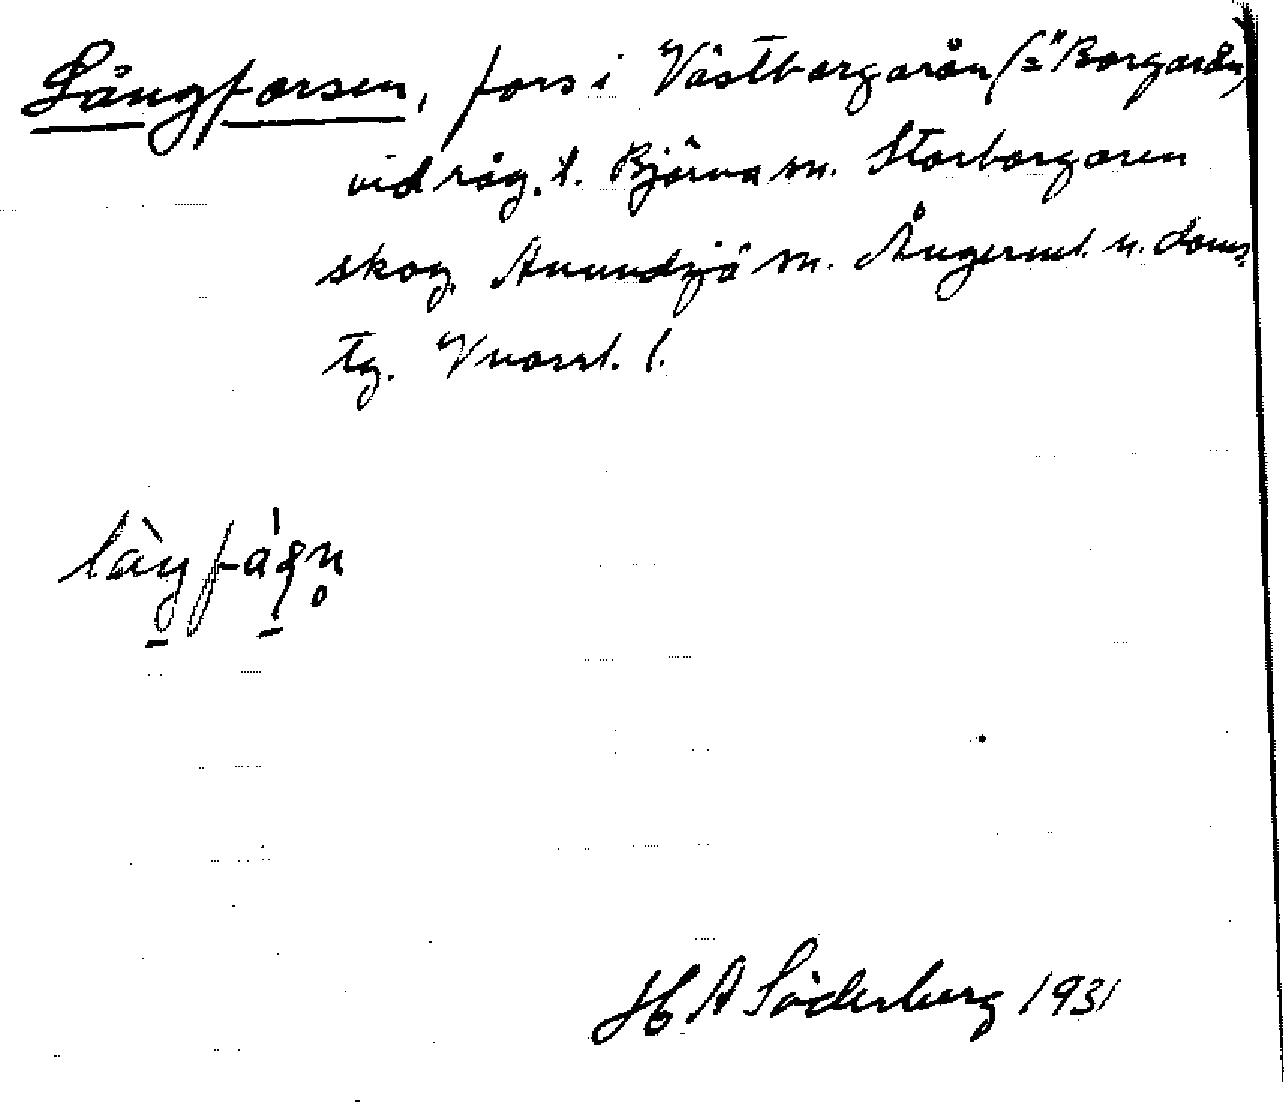 Långforsen, fors i Västborgarån (="Borgarån)
vid råg. t. Björna sn. Storborgaren
skog, Anundsjö sn. Ångerml. n. doms.
tg. Vnorrl. l.
H A Söderberg 1931